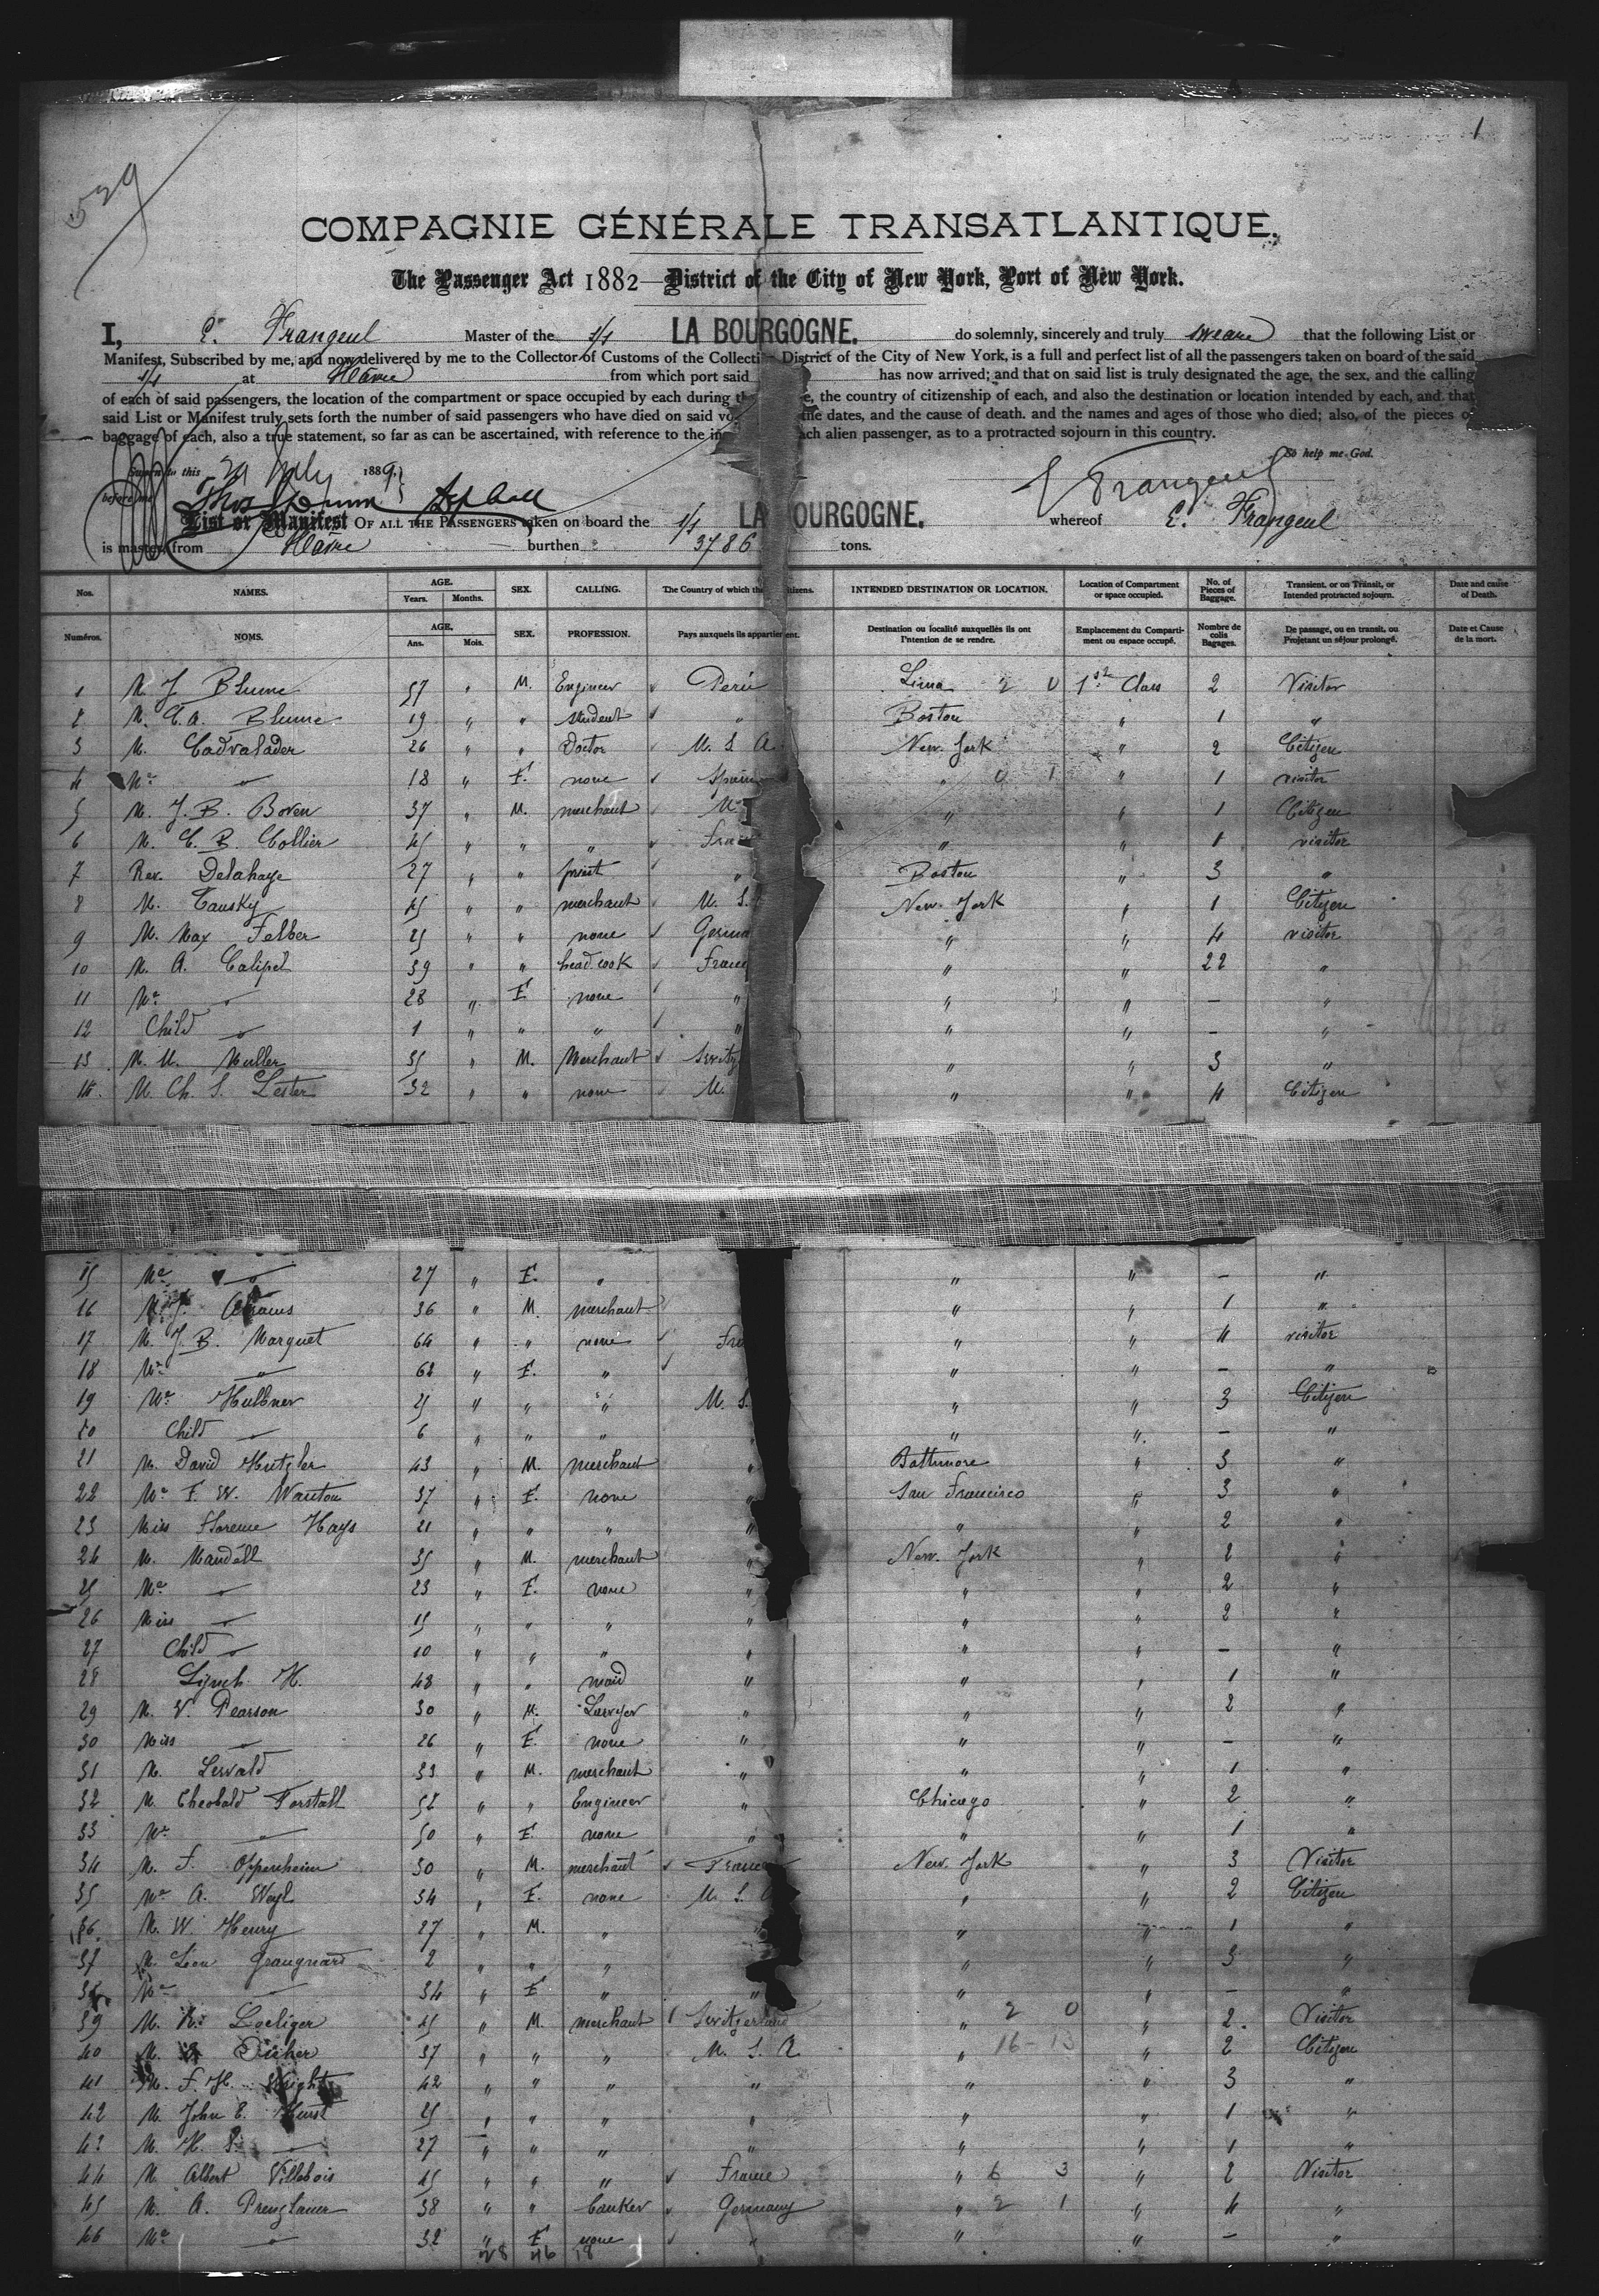 1
529
COMPAGNIE GÉNÉRALE TRANSATLANTIQUE.
The Passenger Act 1882 District of the City of New York, Port of New York.
I, E. Frangeul Master of the S/S LA BOURGOGNE. do solemnly, sincerely and truly swear that the following List or
Manifest, Subscribed by me, and now delivered by me to the Collector of Customs of the Collecti District of the City of New York, is a full and perfect list of all the passengers taken on board of the said
S/S at Havre from which port said has now arrived; and that on said list is truly designated the age, the sex, and the calling
of each of said passengers, the location of the compartment or space occupied by each during e, the country of citizenship of each, and also the destination or location intended by each, and that
said List or Manifest truly sets forth the number of said passengers who have died on said vo the dates, and the cause of death, and the names and ages of those who died; also, of the pieces
baggage of each, also a true statement, so far as can be ascertained, with reference to the in ach alien passenger, as to a protracted sojourn in this country.
So help me God.
Sworn to this 29 July 1889.
before me Thos Dunn Dep Coll E Frangeul
List or Manifest OF ALL THE PASSENGERS taken on board the S/S LA BOURGOGNE. whereof E. Frangeul
is master, from Havre burthen 3786 tons.
Nos. NAMES. AGE. Years. Months. SEX. CALLING. The Country of which th itizens. INTENDED DESTINATION OR LOCATION. Location of Compartment or space occupied. No. of Pieces of Baggage. Transient, or on Transit, or Intended protracted sojourn. Date and cause of Death.
Numéros. NOMS. AGE. Ans. Mois. SEX. PROFESSION. Pays auxquels ils appartiennent. Destination ou localité auxquelles ils ont l'intention de se rendre. Emplacement du Compartiment ou espace occupé. Nombre de colis Bagages. De passage, ou en transit, ou Projetant un séjour prolongé. Date et Cause de la mort.
1 M. J. Blume 57 " M. Engineer Perú Lima 2 0 1st Class 2 Visitor
2 M. C. A. Blume 19 " " student " Boston " 1 "
3 M. Cadvalader 26 " " Doctor U. S. A. New York " 2 Citizen
4 Me " 18 " F. none Spain " 0 1 " 1 visitor
5 M. J. B. Boven 37 " M. merchant U. " " 1 Citizen
6 M. C. B. Collier 45 " " " Fran " " 1 visitor
7 Rev. Delahaye 27 " " priest " Boston " 3 "
8 M. Causky 45 " " merchant U. S. New York " 1 Citizen
9 M. Max Felber 25 " " none Germa " " 4 visitor
10 M. A. Calipel 39 " " head cook Franc " " 22 "
11 Me " 28 " F. none " " " – "
12 Child " 1 " " " " " " – "
13 M. U. Muller 35 " M. Merchant Switz " " 3 "
14 M. Ch. S. Lester 32 " " none U. " " 4 Citizen
15 Me " 27 " F. " " " – "
16 M. J. Abrams 36 " M. merchant " " 1 "
17 M. J. B. Marquet 64 " " none Fra " " 4 visitor
18 Me " 62 " F. " " " – "
19 Me Hullner 25 " " " U. S. " " 3 Citizen
20 Child " 6 " " " " " " – "
21 M. David Hutzler 43 " M. merchant " Baltimore " 3 "
22 Me F. W. Wanton 37 " F. none " San Francisco " 3 "
23 Miss Florence Hays 21 " " " " " " 2 "
24 M. Mandell 35 " M. merchant " New York " 2 "
25 Me " 23 " F. none " " " 2 "
26 Miss " 15 " " " " " " 2 "
27 Child " 10 " " " " " " – "
28 Lynch H. 48 " " maid " " " 1 "
29 M. V. Pearson 30 " M. Lawyer " " " 2 "
30 Miss " 26 " F. none " " " – "
31 M. Lewald 33 " M. merchant " " " 1 "
32 M. Theobald Forstall 52 " " Engineer " Chicago " 2 "
33 Me " 50 " F. none " " " 1 "
34 M. F. Oppenheim 30 " M. merchant France New York " 3 Visitor
35 Me A. Weyl 34 " F. none U. S. A " " 2 Citizen
36 M. W. Henry 27 " M. " " " 1 "
37 M. Leon Graugnard 2 " " " " " 3 "
38 Me " 34 " F. " " " " – "
39 M. R. Loeliger 45 " M. merchant Switzerland " 2 0 " 2 Visitor
40 M. Picher 37 " " " U. S. A. " 16-13 " 2 Citizen
41 M. F. H. Wright 42 " " " " " " 3 "
42 M. John E. Hurst 25 " " " " " " 1 "
43 M. H. S. " 27 " " " " " " 1 "
44 M. Albert Villebois 45 " " " France " 6 3 " 2 Visitor
45 M. A. Prenzlauer 38 " " banker Germany " 2 1 " 4 "
46 Me " 32 " F. none " " " – "
28 46 18